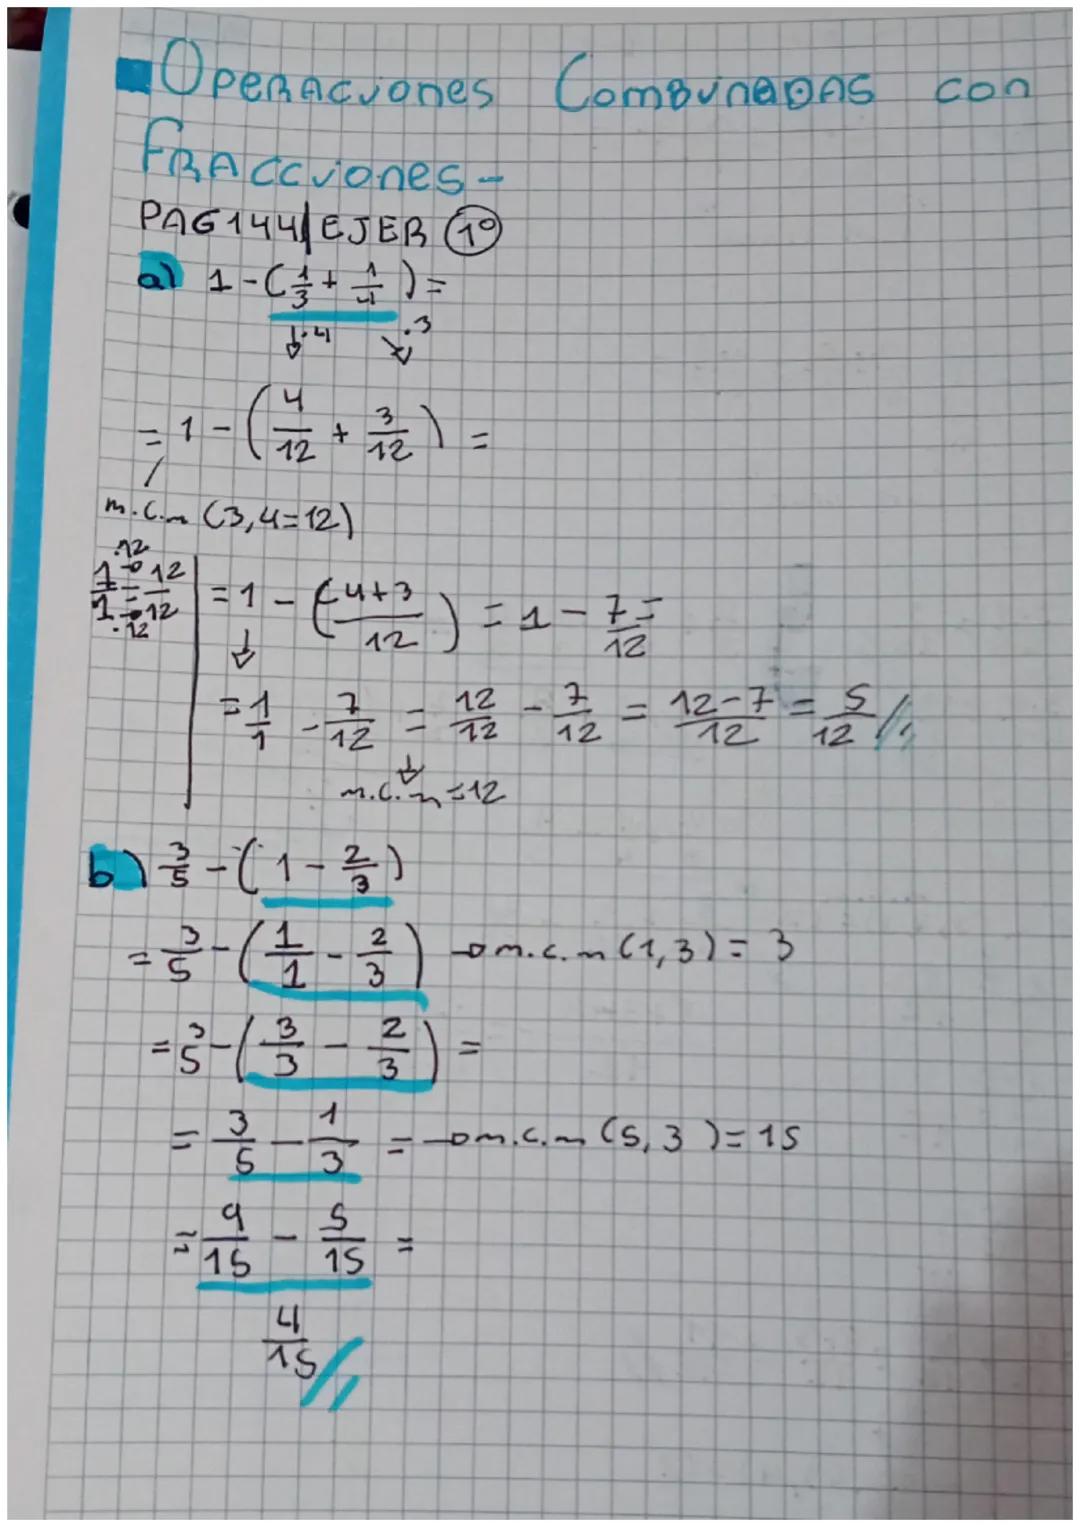 Operaciones Combinadas con
Fracciones-
PAG 144 | EJER 1º
a) 1-(1/3 + 1/4) =
↓·4 ↘·3
= 1 - (4/12 + 3/12) =
m.c.m (3,4=12)
·12
1/1 = 12/12
·12
= 1 - (4+3/12) = 1 - 7/12 =
= 1/1 - 7/12 = 12/12 - 7/12 = 12-7/12 = 5/12 //
m.c.m = 12
b) 3/5 - (1 - 2/3)
= 3/5 - (1/1 - 2/3) → m.c.m (1,3) = 3
= 3/5 - (3/3 - 2/3) =
= 3/5 - 1/3 = → m.c.m (5,3) = 15
= 9/15 - 5/15 =
4/15 //